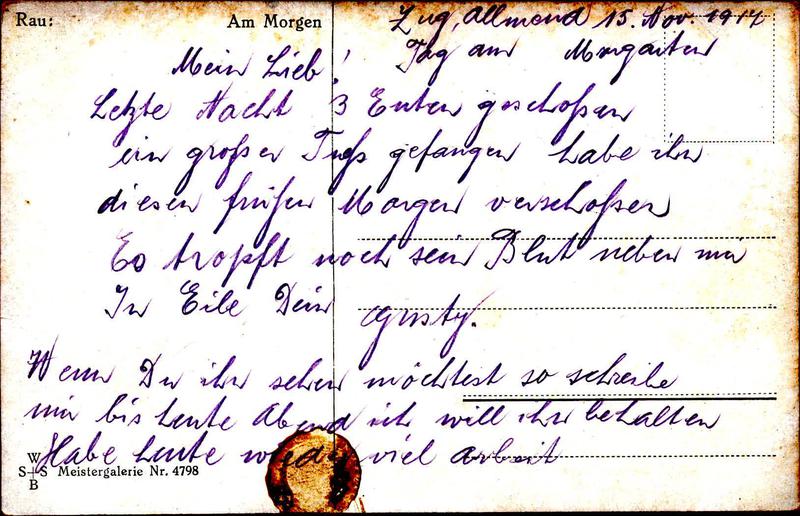 Rau: Am Morgen
Zug, Allmend 15. Nov. 1917
Tag am Morgarten
Mein Lieb!
Letzte Nacht 3 Enten geschoßen
ein großer Fuchs gefangen habe ihn
diesen frühen Morgen verschoßen
Es tropft noch sein Blut neben mir
In Eile Dein Gusty.
Wenn Du ihn sehen möchtest so schreibe
mir bis heute Abend ich will ihn behalten
Habe heute wieder viel arbeit
W
S+S Meistergalerie Nr. 4798
B